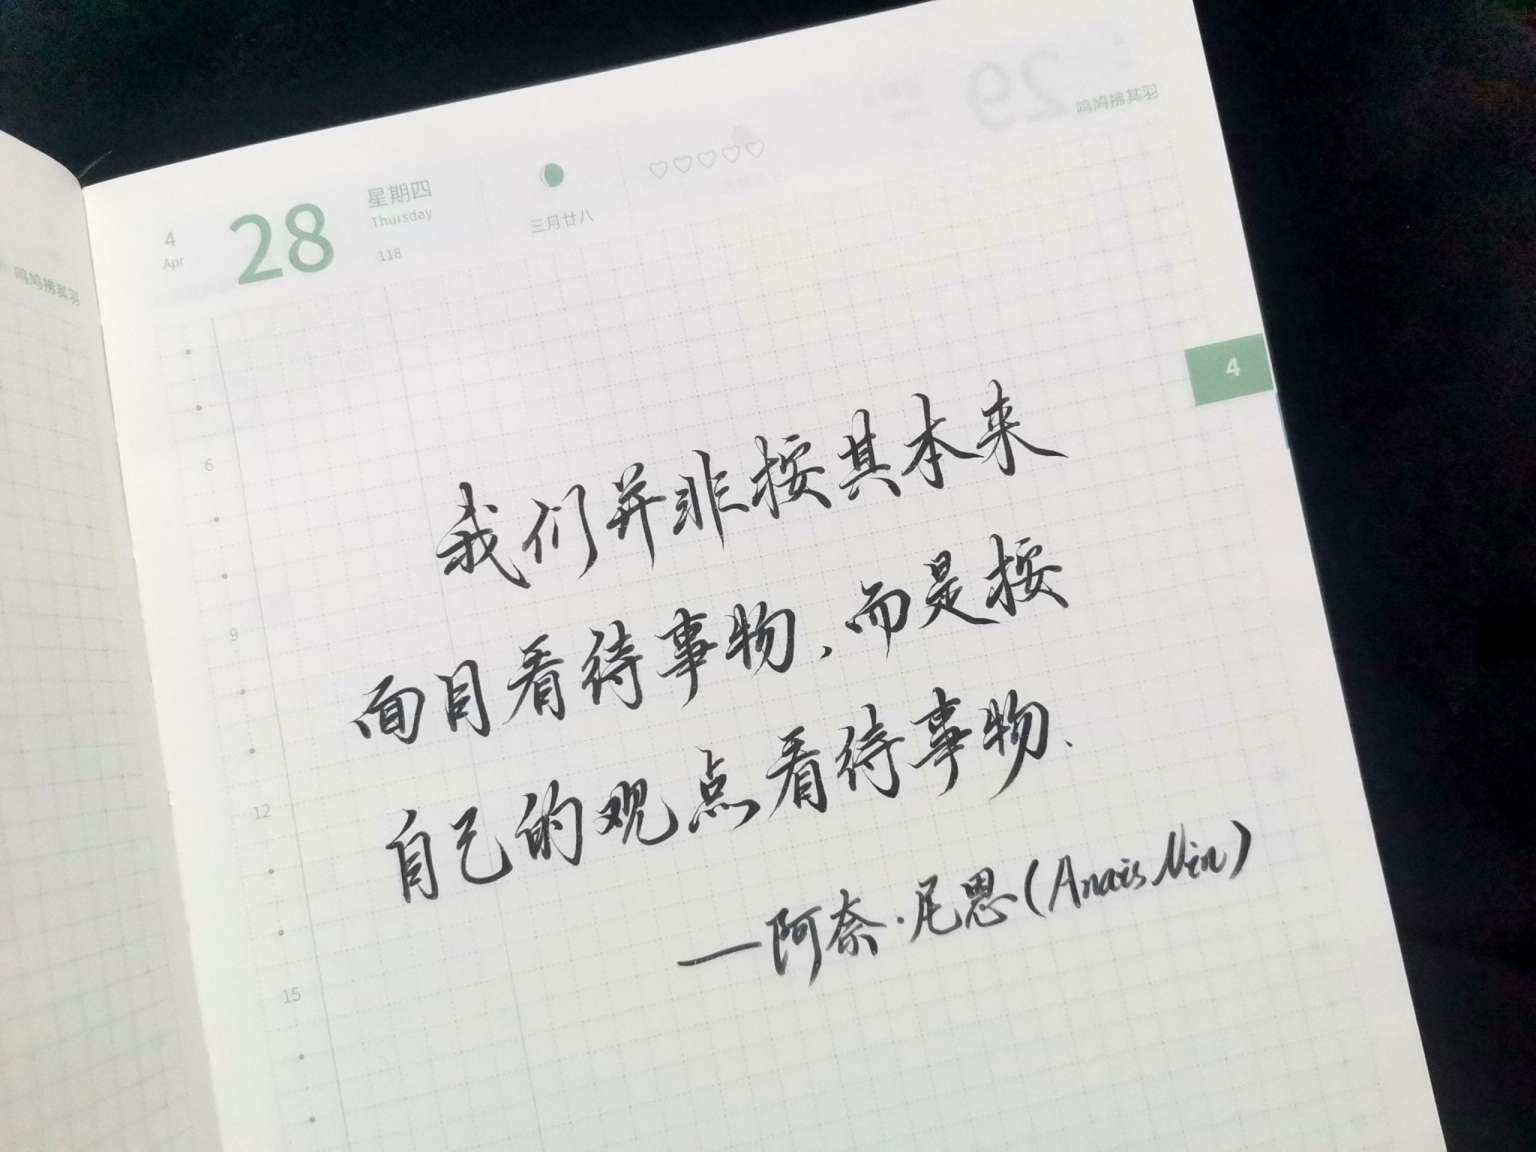 鸣鸠拂其羽
4
Apr
28
星期四
Thursday
118
三月廿八
鸣鸠拂其羽
29
4
6
9
12
15
我们并非按其本来
面目看待事物,而是按
自己的观点看待事物.
—阿奈·尼恩(Anais Nin)